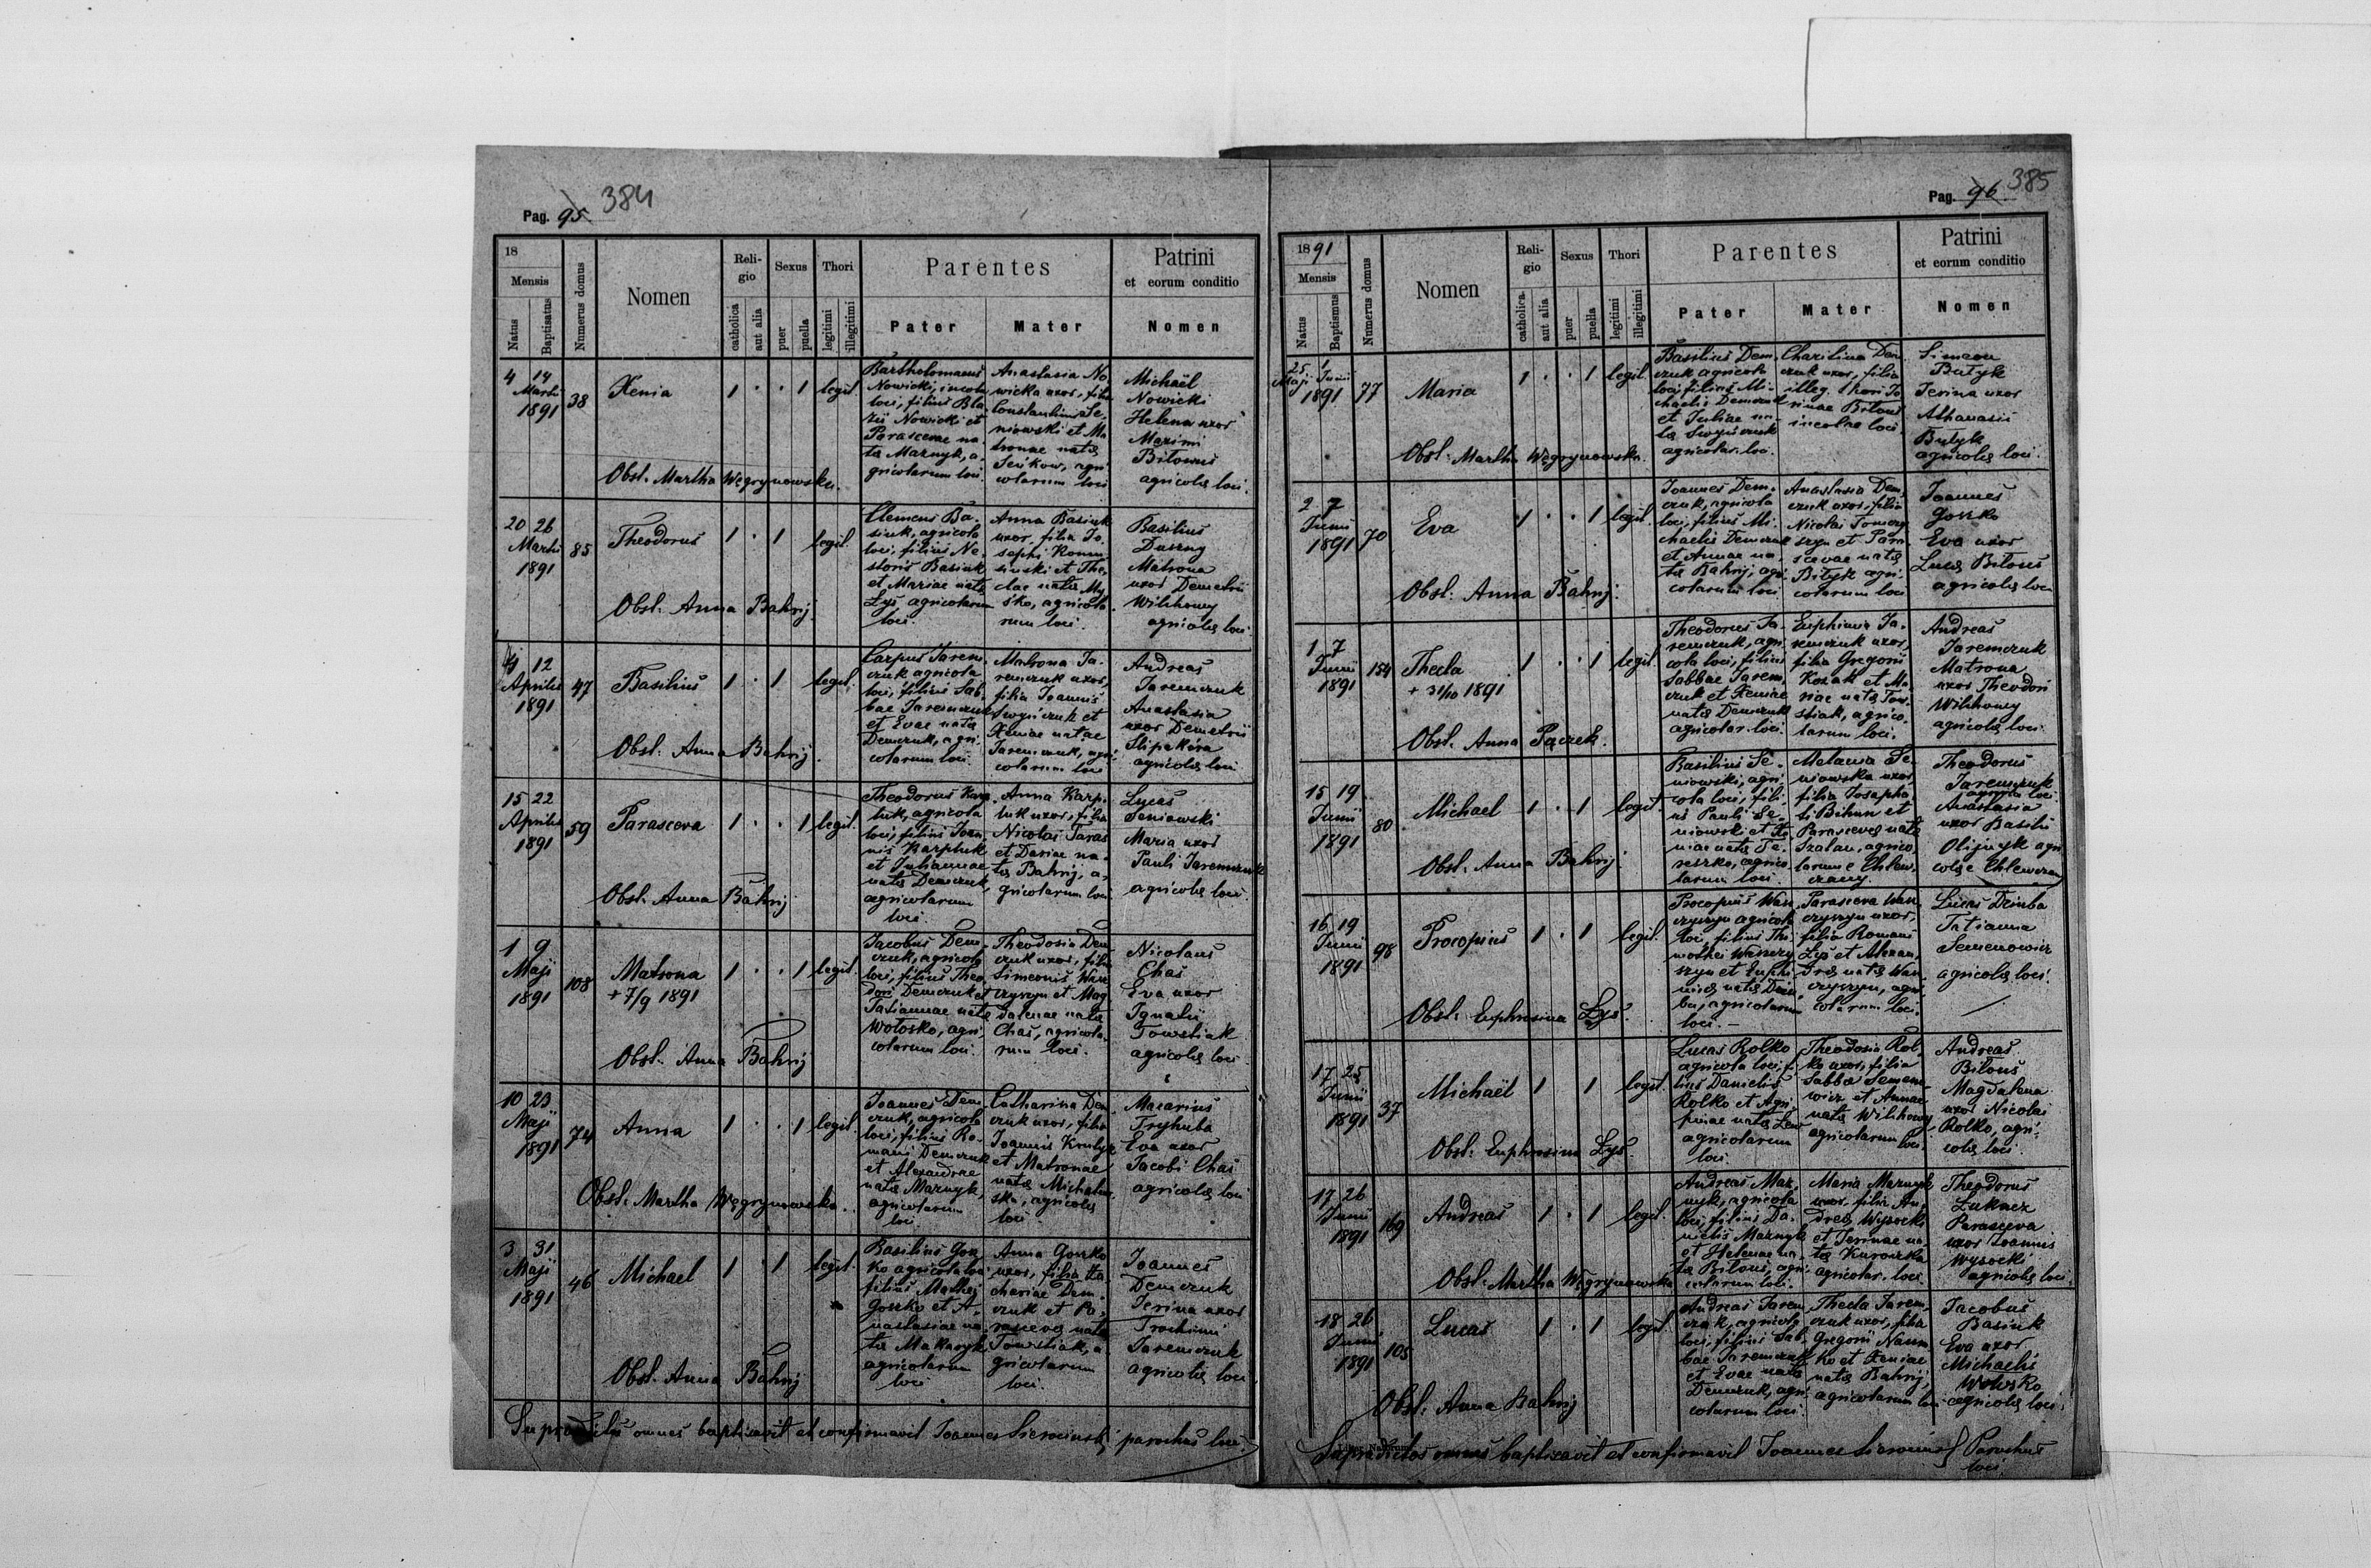 Pag. 95 384
18
Mensis
Natus
Baptisatus
Numerus domus
Nomen
Reli-
gio
catholica
aut alia
Sexus
puer
puella
Thori
legitimi
illegitimi
Parentes
Pater
Mater
Patrini
et eorum conditio
Nomen
4 14
Martii
1891
38
Xenia
1 . . 1 legit.
Bartholomaeus
Nowicki, incola
loci, filius Bla-
sii Nowicki et
Parascevae na-
tae Maznyk, a-
gricolarum loci
Anastasia No-
wicka uxor, filia
Constantini Se-
niowski et Ma-
tronae natae
Seńkow, agri-
colarum loci
Michaël
Nowicki
Helena uxor
Maximi
Bitous
agricolae loci.
Obst. Martha Węgrynowska.
20 26
Martii
1891
85
Theodorus
1 . 1 legit.
Clemens Ba-
siuk, agricola
loci, filius Ne-
storis Basiuk
et Mariae natae
Łyś, agricolarum
loci.
Anna Basiuk
uxor, filia Jo-
sephi
et The-
clae natae
agricola-
rum loci.
Basilius
Duszny
Matrona
uxor Demetrii
Wilchowy
agricolae loci.
Obst. Anna Bahrij.
4 12
Aprilis
1891
47
Basilius
1 . 1 legit.
Carpus Jarem-
czuk agricola
loci, filius Sab-
bae Jaremczuk
et Evae natae
Demczuk, agri-
colarum loci.
Matrona Ja-
remczuk uxor,
filia Joannis
et
Xeniae natae
Jaremczuk, agri-
colarum loci
Andreas
Jaremczuk
Anastasia
uxor Demetrii
Slipakira
agricolae loci
Obst. Anna Bahrij.
15 22
Aprilis
1891
59
Parasceva
1 . . 1 legit.
Theodorus Karp-
luk, agricola
loci, filius Joan-
nis Karpluk
et Juliannae
natae Demczuk,
agricolarum
loci.
Anna Karp-
luk uxor, filia
Nicolai Taras
et Dariae na-
tae Bahrij, a-
gricolarum loci.
Lucas
Seniowski
Maria uxor
Pauli Jaremczuk
agricolae loci.
Obst. Anna Bahrij
1 9
Maji
1891
108
Matrona
+ 7/9 1891
1 . . 1 legit.
Jacobus Dem-
czuk, agricola
loci, filius Theo-
dori Demczuk et
Tatiannae natae
Wołosko, agri-
colarum loci.
Theodosia Dem-
czuk uxor, filia
Simeonis Wasz-
czyszyn et Mag-
dalenae natae
Chaś, agricola-
rum loci.
Nicolaus
Chaś
Eva uxor
Ignatii
Towstiak
agricolae loci
Obst. Anna Bahrij
10 23
Maji
1891
74
Anna
1 . . 1 legit.
Joannes Dem-
czuk, agricola
loci, filius Ro-
mani Demczuk
et Alexandrae
natae Maznyk,
agricolarum
loci
Catharina Dem-
czuk uxor, filia
Joannis
et Matronae
natae
agricolae
loci.
Macarius
Tryhuba
Eva uxor
Jacobi Chaś
agricolae loci
Obst. Martha Węgrynowska.
3 31
Maji
1891
46
Michael
1 . 1 legit.
Basilius Gosz-
ko agricola loci
filius Mathei
Goszko et A-
nastasiae na-
tae Makaryk,
agricolarum
loci
Anna Goszko
uxor, filia Za-
chariae Dem-
czuk et Pa-
rascevae natae
Towstiak, a-
gricolarum
loci.
Joannes
Demczuk
Jerina uxor
Trochimi
Jaremczuk
agricolae loci
Obst. Anna Bahrij
omnes baptizavit et confirmavit Joannes Sierociński parochus loci
Pag. 96 385
1891
Mensis
Natus
Baptismus
Numerus domus
Nomen
Reli-
gio
catholica
aut alia
Sexus
puer
puella
Thori
legitimi
illegitimi
Parentes
Pater
Mater
Patrini
et eorum conditio
Nomen
25 1
Maji Junii
1891
77
Maria
1 . . 1 legit.
Basilius Dem-
czuk agricola
loci, filius Mi-
chaelis Demczuk
et Juliae na-
tae
agricolar. loci.
Charitina Dem-
czuk uxor, filia
illeg. thori Je-
rinae Bitous
incolae loci.
Simeon
Butyk
Jerina uxor
Athanasii
Butyk
agricolae loci.
Obst. Martha Węgrynowska.
2 7
Junii
1891
70
Eva
1 . . 1 legit.
Joannes Dem-
czuk, agricola
loci, filius Mi-
chaelis Demczuk
et Annae na-
tae Bahrij, agri-
colarum loci
Anastasia Dem-
czuk uxor, filia
Nicolai
et Para-
scevae natae
Bityk agri-
colarum loci
Joannes
Goszko
Eva uxor
Lucae Bitous
agricolae loci
Obst. Anna Bahrij.
1 7
Junii
1891
154
Thecla
+ 31/10 1891
1 . . 1 legit.
Theodorus Ja-
remczuk, agri-
cola loci, filius
Sabbae Jarem-
czuk et Xeniae
natae Demczuk
agricolar. loci.
Euphimia Ja-
remczuk uxor,
filia Gregorii
Kozak et Ma-
riae natae Tow-
stiak, agrico-
larum loci.
Andreas
Jaremczuk
Matrona
uxor Theodori
Wilchowy
agricolae loci
Obst. Anna Paczek.
15 19
Junii
1891
80
Michael
1 . 1 legit.
Basilius Se-
niowski, agri-
cola loci, fili-
us Pauli Se-
niowski et Xe-
niae natae Te-
reszko, agrico-
larum loci.
Melania Se-
niowska uxor,
filia Josapha-
ti Bihun et
Parascevae natae
Szalau, agrico-
larum e Chlew-
czany.
Theodorus
Jaremczuk
agricola loci
Anastasia
uxor Basilii
Olijnyk agri-
colae Chlewczany
Obst. Anna Bahrij.
16 19
Junii
1891
98
Procopius
1 . 1 legit.
Procopius Wasz-
czyszyn agricola
loci, filius Thi-
mothei Waszczy-
szyn et Euphi-
miae natae Dziu-
ba, agricolarum
loci.
Parasceva Wasz-
czyszyn uxor,
filia Romani
Łyś et Alexan-
drae natae Wasz-
czyszyn, agri-
colarum loci.
Lucas Dziuba
Tatianna
Semenowicz
agricolae loci.
Obst. Euphrosina Łyś.
17 25
Junii
1891
37
Michaël
1 1 legit.
Lucas Rolko
agricola loci, fi-
lius Danielis
Rolko et Agri-
pinae natae Lew
agricolarum
loci.
Theodosia Rol-
ko uxor, filia
Sabbae Semeno-
wicz et Annae
natae Wilchowy,
agricolarum loci.
Andreas
Bitous
Magdalena
uxor Nicolai
Rolko, agri-
colae loci.
Obst. Euphrosina Łyś.
17 26
Junii
1891
169
Andreas
1 . 1 legit.
Andreas Maz-
nyk, agricola
loci, filius Da-
nielis Maznyk
et Helenae na-
tae Bitous, agri-
colarum loci.
Maria Maznyk
uxor, filia An-
dreae Wysocki
et Jerinae na-
tae Kuroczka
agricolar. loci
Theodorus
Łukacz
Parasceva
uxor Joannis
Wysocki
agricolae loci.
Obst. Martha Węgrynowska
18 26
Junii
1891
105
Lucas
1 . 1 legit.
Andreas Jarem-
czuk, agricola
loci, filius Sab-
bae Jaremczuk
et Evae natae
Demczuk, agri-
colarum loci.
Thecla Jarem-
czuk uxor, filia
Gregorii Naum-
ko et Xeniae
natae Bahrij,
agricolarum loci
Jacobus
Basiuk
Eva uxor
Michaelis
Wołosko
agricolae loci.
Obst. Anna Bahrij
Supradictos omnes baptizavit et confirmavit Joannes Parochus
loci.